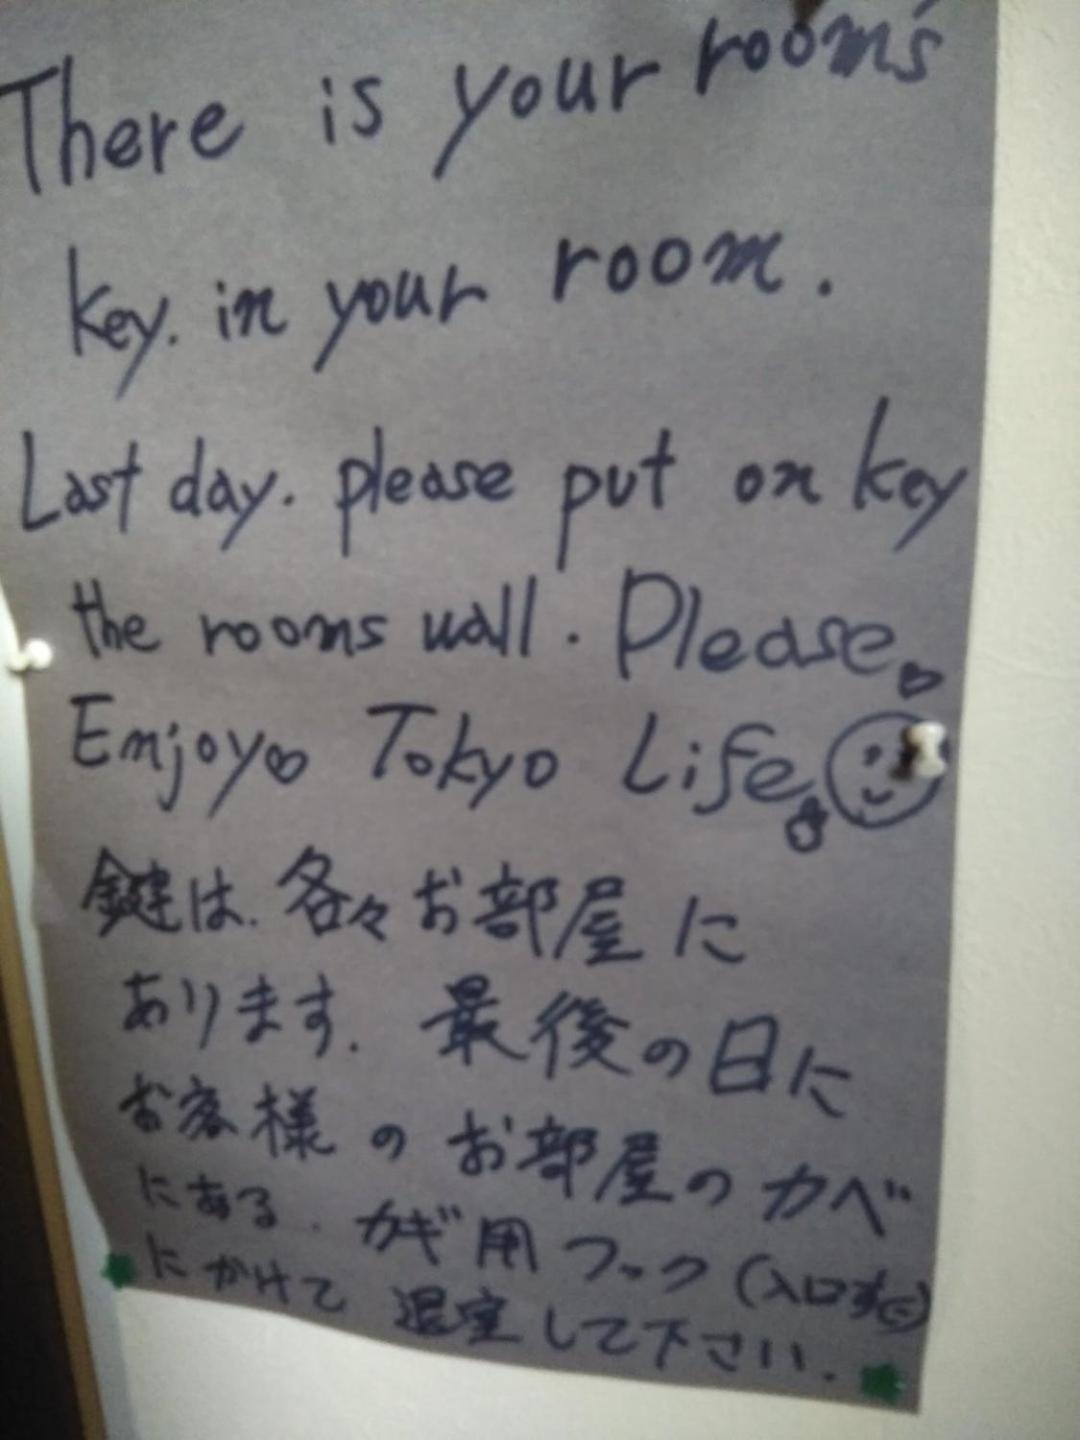 There is your room's
key. in your room.
Last day. please put on key
the rooms wall. Please
Enjoy Tokyo Life
鍵は、各々お部屋に
あります. 最後の日に
お客様のお部屋のカベ
にある、カギ用フック(入口
にかけて退室して下さい.